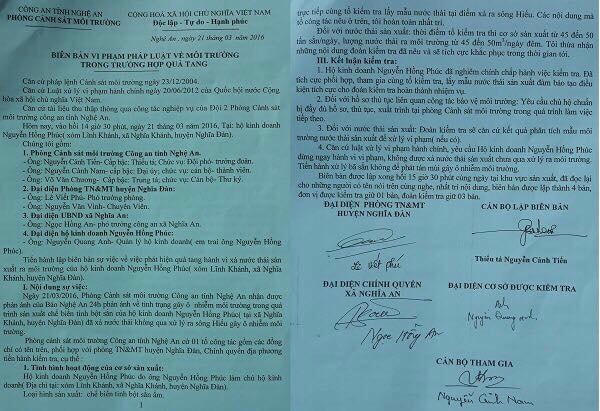 CÔNG AN TỈNH NGHỆ AN
PHÒNG CẢNH SÁT MÔI TRƯỜNG
CỘNG HOÀ XÃ HỘI CHỦ NGHĨA VIỆT NAM
Độc lập - Tự do - Hạnh phúc
Nghệ An, ngày 21 tháng 03 năm 2016
BIÊN BẢN VI PHẠM PHÁP LUẬT VỀ MÔI TRƯỜNG
TRONG TRƯỜNG HỢP QUẢ TANG
Căn cứ pháp lệnh Cảnh sát môi trường ngày 23/12/2004.
Căn cứ Luật xử lý vi phạm hành chính ngày 20/06/2012 của Quốc hội nước Cộng
hòa xã hội chủ nghĩa Việt Nam.
Căn cứ tài liệu thu thập thông qua công tác nghiệp vụ của Đội 2 Phòng Cảnh sát
môi trường công an tỉnh Nghệ An.
Hôm nay, vào hồi 14 giờ 30 phút, ngày 21 tháng 03 năm 2016, Tại: hộ kinh doanh
Nguyễn Hồng Phúc( xóm Lĩnh Khánh, xã Nghĩa Khánh, huyện Nghĩa Đàn).
Chúng tôi gồm:
1. Phòng Cảnh sát môi trường Công an tỉnh Nghệ An.
-Ông: Nguyễn Cảnh Tiến- Cấp bậc: Thiếu tá; Chức vụ: Đội phó- trưởng đoàn.
-Ông: Nguyễn Cảnh Nam- cấp bậc: Đại úy; chức vụ: cán bộ- thành viên.
-Ông: Võ Văn Chương- Cấp bậc: Trung tá; chức vụ: Cán bộ- Thư ký.
2. Đại diện Phòng TN&MT huyện Nghĩa Đàn:
-Ông: Lê Viết Phú- Phó trưởng phòng.
-Ông: Nguyễn Văn Vinh- Chuyên Viên.
3. Đại diện UBND xã Nghĩa An:
-Ông: Ngọc Hồng An- phó trưởng công an xã Nghĩa An.
4. Đại diện hộ kinh doanh Nguyễn Hồng Phúc:
-Ông: Nguyễn Quang Anh- Quản lý hộ kinh doanh( em trai ông Nguyễn Hồng
Phúc).
Tiến hành lập biên bản sự việc về việc phát hiện quả tang hành vi xả nước thải sản
xuất ra môi trường của hộ kinh doanh Nguyễn Hồng Phúc( xóm Lĩnh Khánh, xã Nghĩa
Khánh, huyện Nghĩa Đàn).
I. Nội dung sự việc:
Ngày 21/03/2016, Phòng Cảnh sát môi trường Công an tỉnh Nghệ An nhận được
phản ánh của Báo Nghệ An 24h phản ánh về tình trạng gây ô nhiễm môi trường trong quá
trình sản xuất chế biến tinh bột sắn của hộ kinh doanh Nguyễn Hồng Phúc( tại xã Nghĩa
Khánh, huyện Nghĩa Đàn) đã xả nước thải không qua xử lý ra sông Hiếu gây ô nhiễm môi
trường.
Phòng cảnh sát môi trường Công an tỉnh Nghệ An cử 01 tổ công tác gồm các đồng
chí có tên trên, phối hợp với phòng TN&MT huyện Nghĩa Đàn, Chính quyền địa phương
tiến hành kiểm tra, cụ thể :
1. Tình hình hoạt động của cơ sở sản xuất:
Hộ kinh doanh Nguyễn Hồng Phúc do ông Nguyễn Hồng Phúc làm chủ hộ kinh
doanh( Địa chỉ tại: xóm Lĩnh Khánh, xã Nghĩa Khánh, huyện Nghĩa Đàn).
Loại hình sản xuất: chế biến tinh bột sắn ẩm.
1
trực tiếp cùng tổ kiểm tra lấy mẫu nước thải tại điểm xả ra sông Hiếu. Các nội dung mà
tổ công tác nêu ở trên, tôi hoàn toàn nhất trí.
Đối với nước thải sản xuất: thời điểm tổ kiểm tra thì cơ sở sản xuất từ 45 đến 50
tấn sắn/ngày, lượng nước thải ra môi trường từ 45 đến 50m³/ngày đêm. Tôi thừa nhận
những nội dung đoàn kiểm tra đã nêu và sẽ tích cực khắc phục trong thời gian tới.
III. Kết luận kiểm tra:
1. Hộ kinh doanh Nguyễn Hồng Phúc đã nghiêm chỉnh chấp hành việc kiểm tra. Đã
tích cực phối hợp, tham gia cùng tổ kiểm tra, lấy mẫu nước thải sản xuất đảm bảo tạo điều
kiện tích cực cho đoàn kiểm tra hoàn thành nhiệm vụ.
2. Đối với hồ sơ thủ tục liên quan công tác bảo vệ môi trường: Yêu cầu chủ hộ chuẩn
bị đầy đủ hồ sơ, thủ tục, xuất trình tại phòng Cảnh sát môi trường trong quá trình làm việc
tiếp theo.
3. Đối với nước thải sản xuất: Đoàn kiểm tra sẽ căn cứ kết quả phân tích mẫu môi
trường nước thải sản xuất để xử lý vi phạm( nếu có).
4. Căn cứ luật xử lý vi phạm hành chính, yêu cầu Hộ kinh doanh Nguyễn Hồng Phúc
dừng ngay hành vi vi phạm, không được xả nước thải sản xuất chưa qua xử lý ra môi trường.
Tiến hành xử lý bã sắn không để phát tán mùi gây ô nhiễm môi trường.
Biên bản được lập xong hồi 15 giờ 30 phút cùng ngày tại khu vực sản xuất, đã đọc lại
cho những người có tên nói trên cùng nghe, nhất trí nội dung, biên bản được lập thành 4 bản,
đơn vị được kiểm tra giữ 01 bản, đoàn kiểm tra giữ 03 bản.
ĐẠI DIỆN PHÒNG TN&MT
HUYỆN NGHĨA ĐÀN
CÁN BỘ LẬP BIÊN BẢN
Lê Viết Phú
Thiếu tá Nguyễn Cảnh Tiến
ĐẠI DIỆN CHÍNH QUYỀN
XÃ NGHĨA AN
ĐẠI DIỆN CƠ SỞ ĐƯỢC KIỂM TRA
Anh
Nguyễn Quang Anh
Ngọc Hồng An
CÁN BỘ THAM GIA
Nguyễn Cảnh Nam